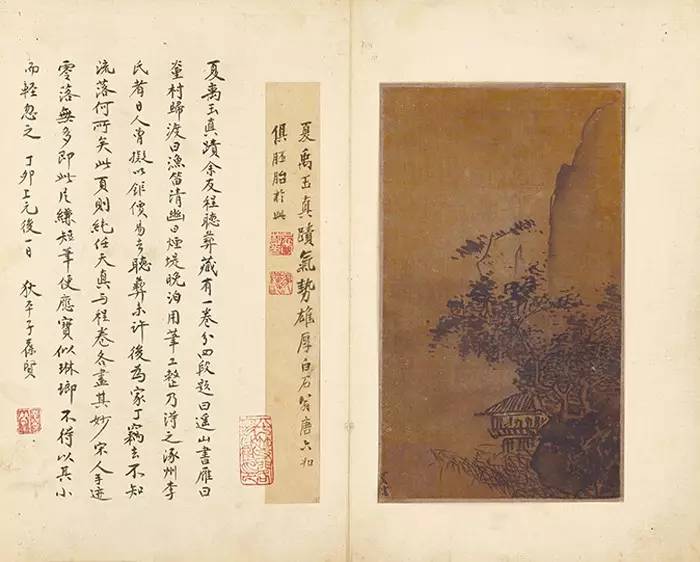 夏禹玉真蹟氣勢雄厚白石翁唐六如
俱胚胎於此
夏禹玉真蹟余友程聽彝藏有一卷分四段題曰遥山書雁曰
村歸渡曰漁笛清幽曰煙堤晚泊用筆工整乃得之涿州李
氏者日人曾擬以鉅價易去聽彝未許後為家丁竊去不知
流落何所矣此頁則純任天真与程卷各盡其妙宋人手迹
零落無多即此片縑短筆便應寶似琳瑯不得以其小
而輕忽之 丁卯上元後一日 狄平子葆賢